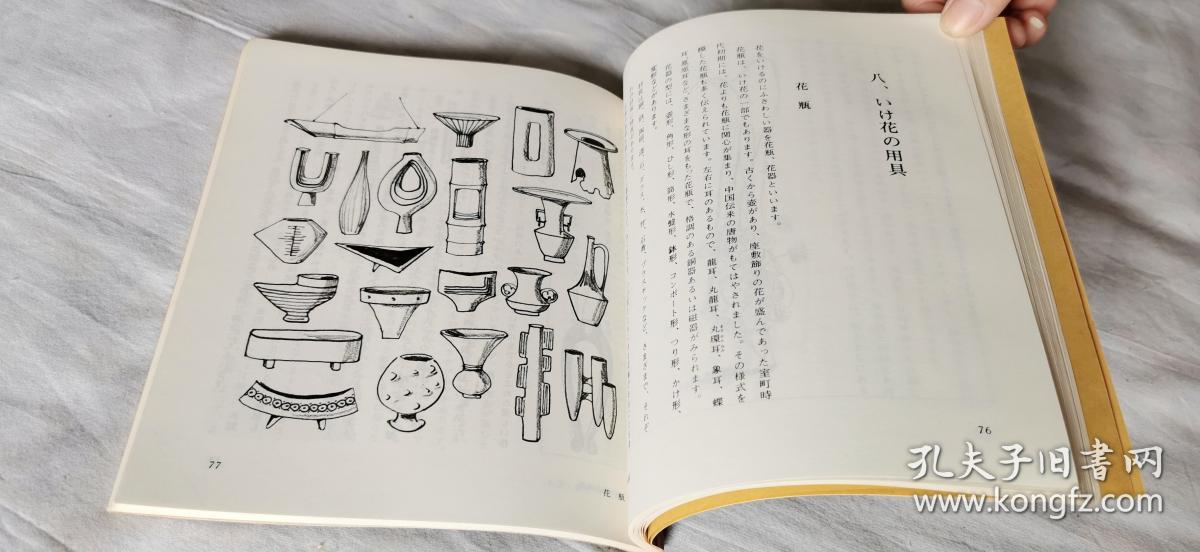 八、いけ花の用具
花瓶
花をいけるのにふさわしい器を花瓶、花器といいます。
花瓶は、いけ花の一部でもあります。古くから壺があり、座敷飾りの花が盛んであった室町時
代初期には、花よりも花瓶に関心が集まり、中国伝来の唐物がもてはやされました。その様式を
模した花瓶も多く伝えられています。左右に耳のあるもので、龍耳、丸龍耳、丸環耳、象耳、蝶
耳、鳳凰耳など、さまざまな形の耳をもった花瓶で、格調のある銅器あるいは磁器がみられます。
花器の型には、壺形、角形、ひし形、筒形、水盤形、鉢形、コンポート形、つり形、かけ形、
変形などがあります。
76
77
花瓶
孔夫子旧书网
www.kongfz.com